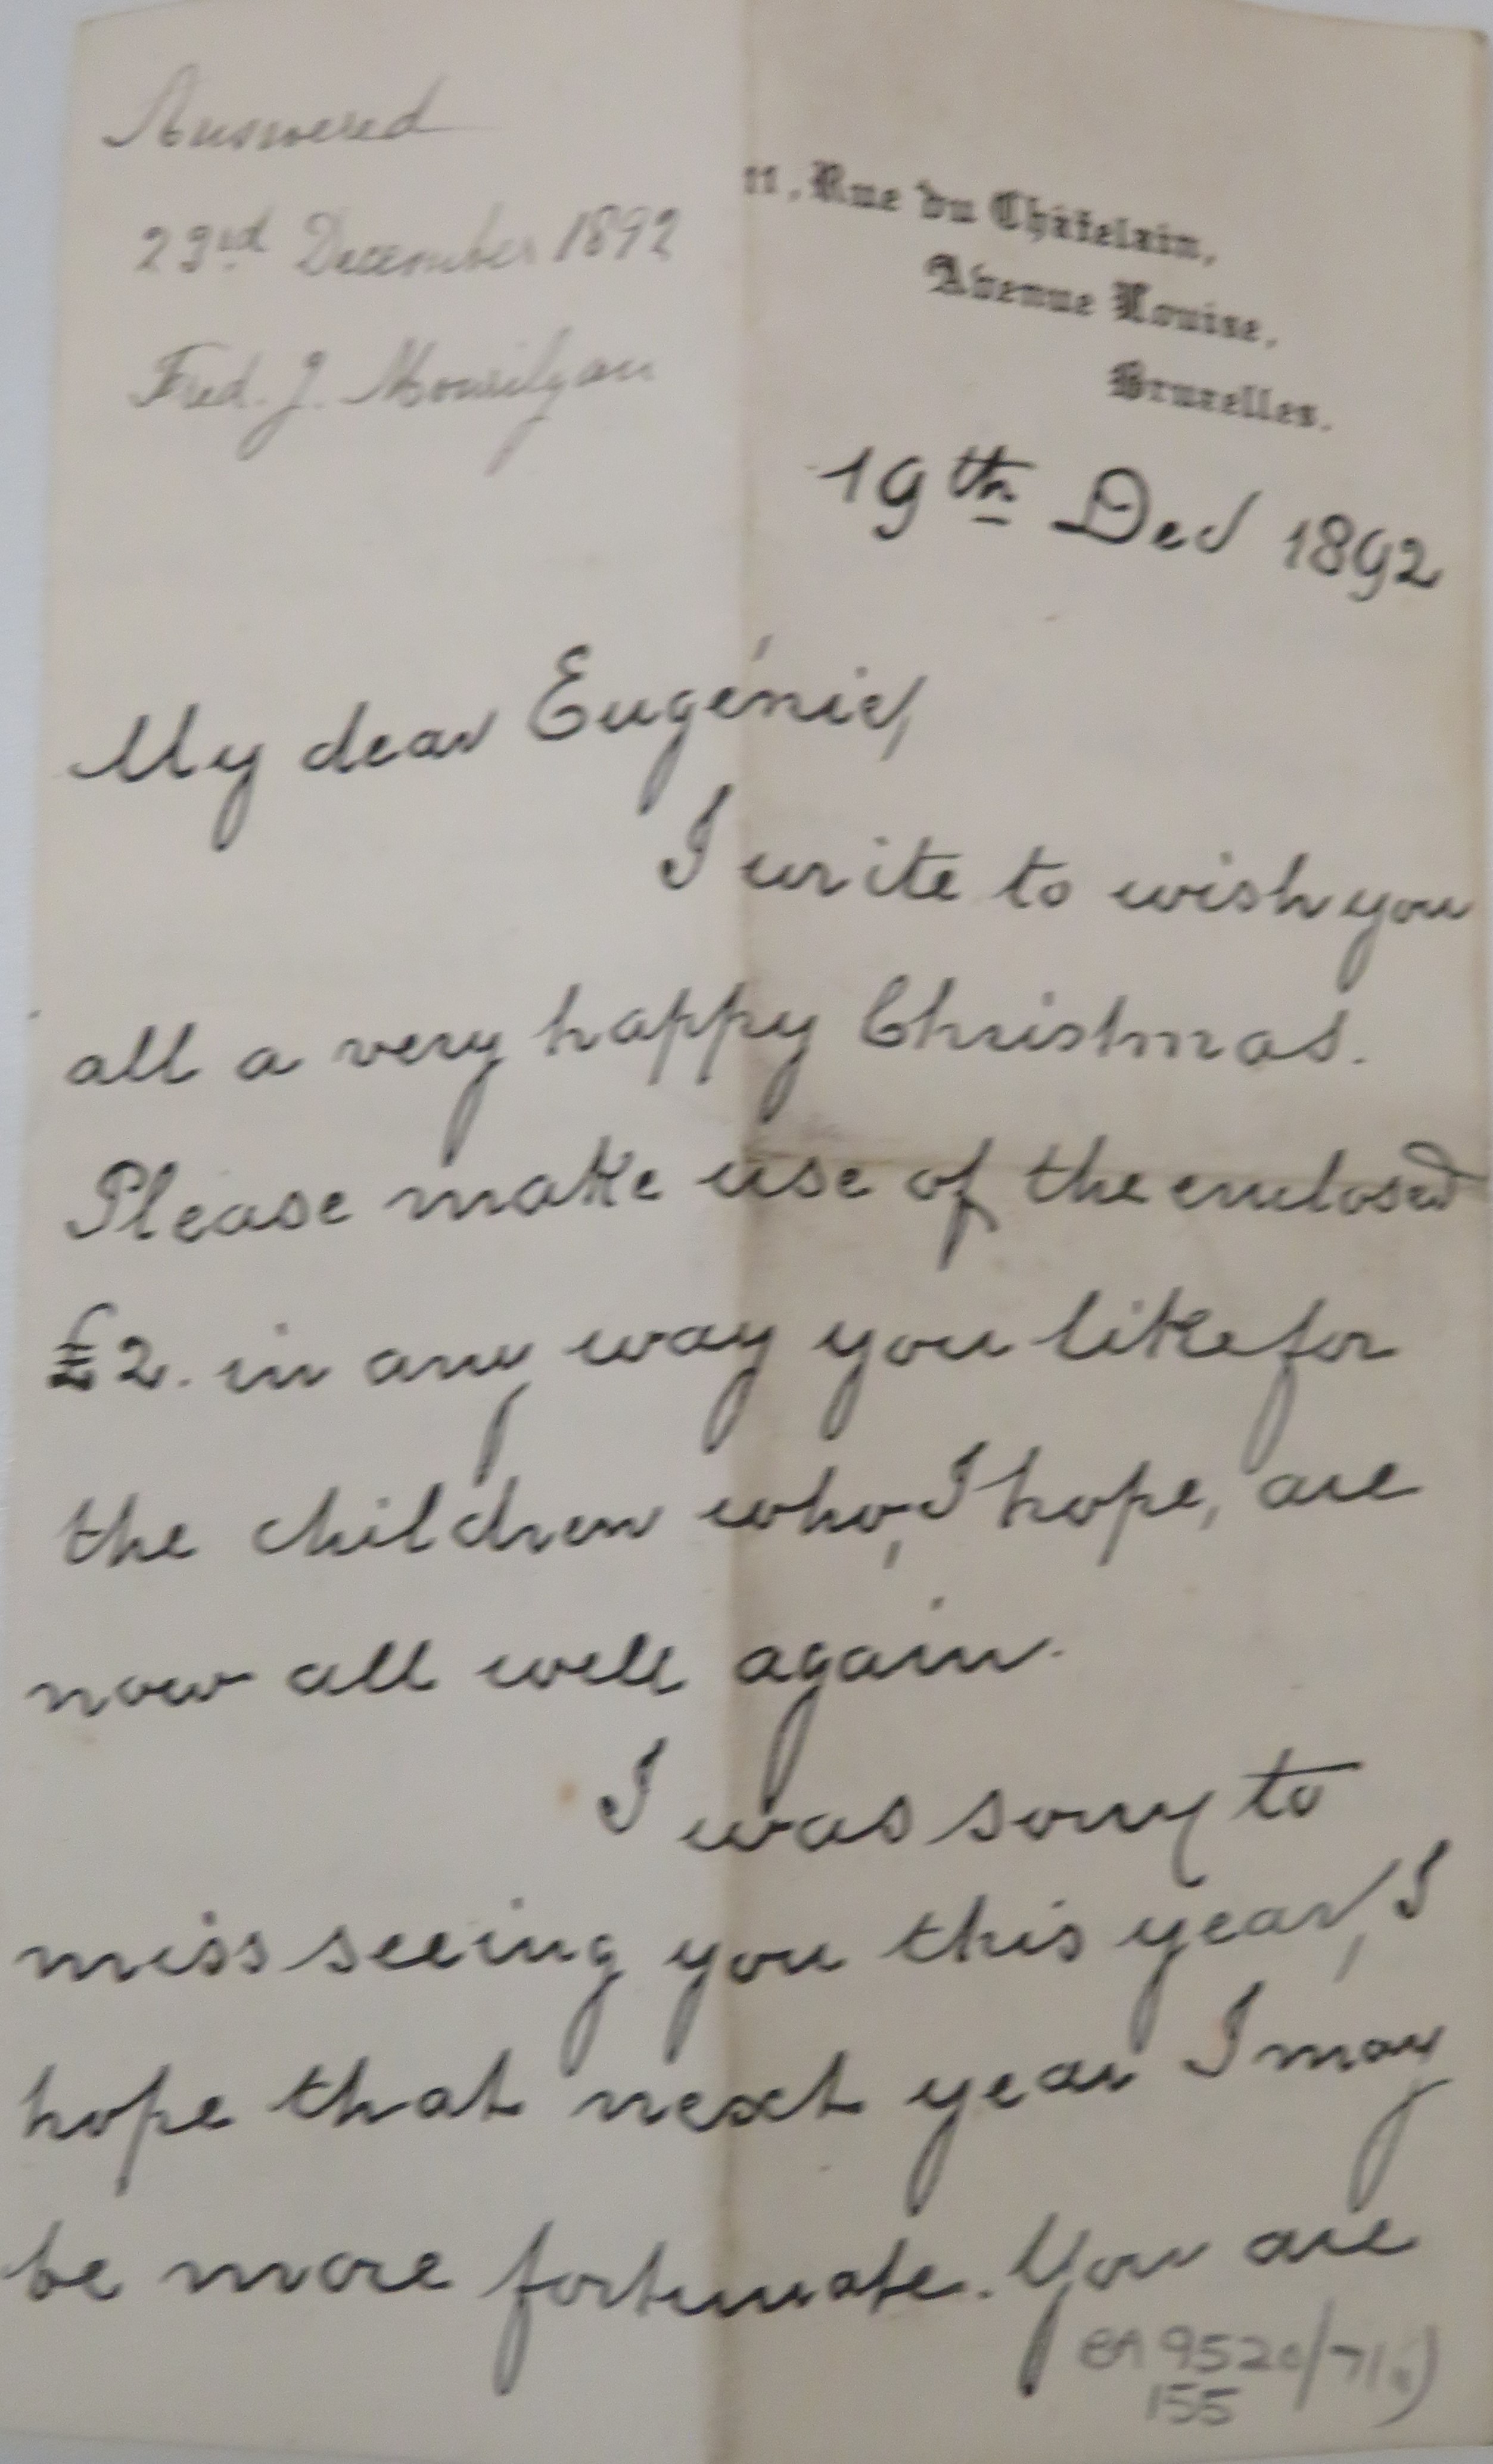 Answered
23rd December 1892
Fred. J. Mouilyan
11, Rue du Châtelain,
Avenue Louise,
Bruxelles.
19th Dec 1892
My dear Eugénie,
I write to wish you
all a very happy Christmas.
Please make use of the enclosed
£2. in any way you like for
the children who, I hope, are
now all well again.
I was sorry to
miss seeing you this year, I
hope that next year I may
be more fortunate. You are
9520/71
155